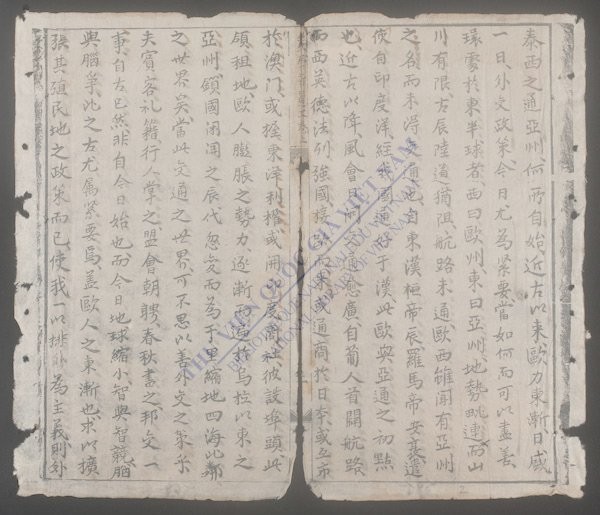 泰西之通亞州、何所自始、近古以來、歐力東漸日盛
一日、外交政策、今日尤為緊要、當如何而可以盡善、
環寰於東半球者、西曰歐州、東曰亞州、地勢毗連、而山
川有限、古辰陸道猶阻、航路未通、歐西雖聞有亞州
之名、而未得通也、自東漢桓帝辰、羅馬帝安敦遣
使自印度洋經我國通好于漢、此歐與亞通之初點
也、近古以降、風會日開、交通愈廣、自葡人首開航路、
而西英德法列強國接而來、或通商於日本、或互市
於澳門、或握東洋利權、或開印度商社、彼設埠頭、此
領租地、歐人膨脹之勢力、逐漸而進於烏拉以東之
亞州、鎖國閉關之辰代、忽變而為千里縮地四海比鄰
之世界矣、當此交通之世界、可不思以善外交之策乎
夫賓客礼籍、行人掌之、盟會朝聘、春秋書之、邦交一
事、自古已然、非自今日始也、而今日地球縮小、智與智競、腦
與腦爭、比之古尤為緊要焉、蓋歐人之東漸也、求以擴
張其殖民地之政策而已、使我一以排外為主義、則外
THƯ VIỆN QUỐC GIA VIỆT NAM
NATIONAL LIBRARY OF VIETNAM